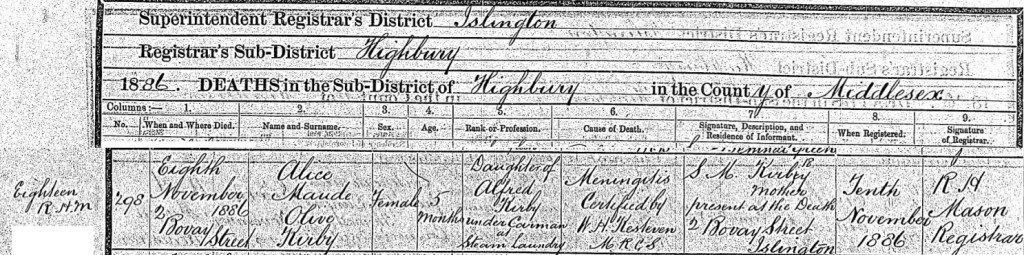 Superintendent Registrar's District Islington
Registrar's Sub-District Highbury
1886. DEATHS in the Sub-District of Highbury in the County of Middlesex.
Columns:— 1. 2. 3. 4. 5. 6. 7. 8. 9.
No. When and Where Died. Name and Surname. Sex. Age. Rank or Profession. Cause of Death. Signature, Description, and Residence of Informant. When Registered. Signature of Registrar.
Eighteen
R.H.M
298
Eighth
November
1886
2
Bovay
Street
Alice
Maude
Olive
Kirby
Female
5
months
Daughter of
Alfred
Kirby
under Carman
at
Steam Laundry
Meningitis
Certified by
W. H. Kesteven
M R C S
S. M. Kirby
18
mother
present at the Death
2 Bovay Street
Islington
Tenth
November
1886
R H
Mason
Registrar